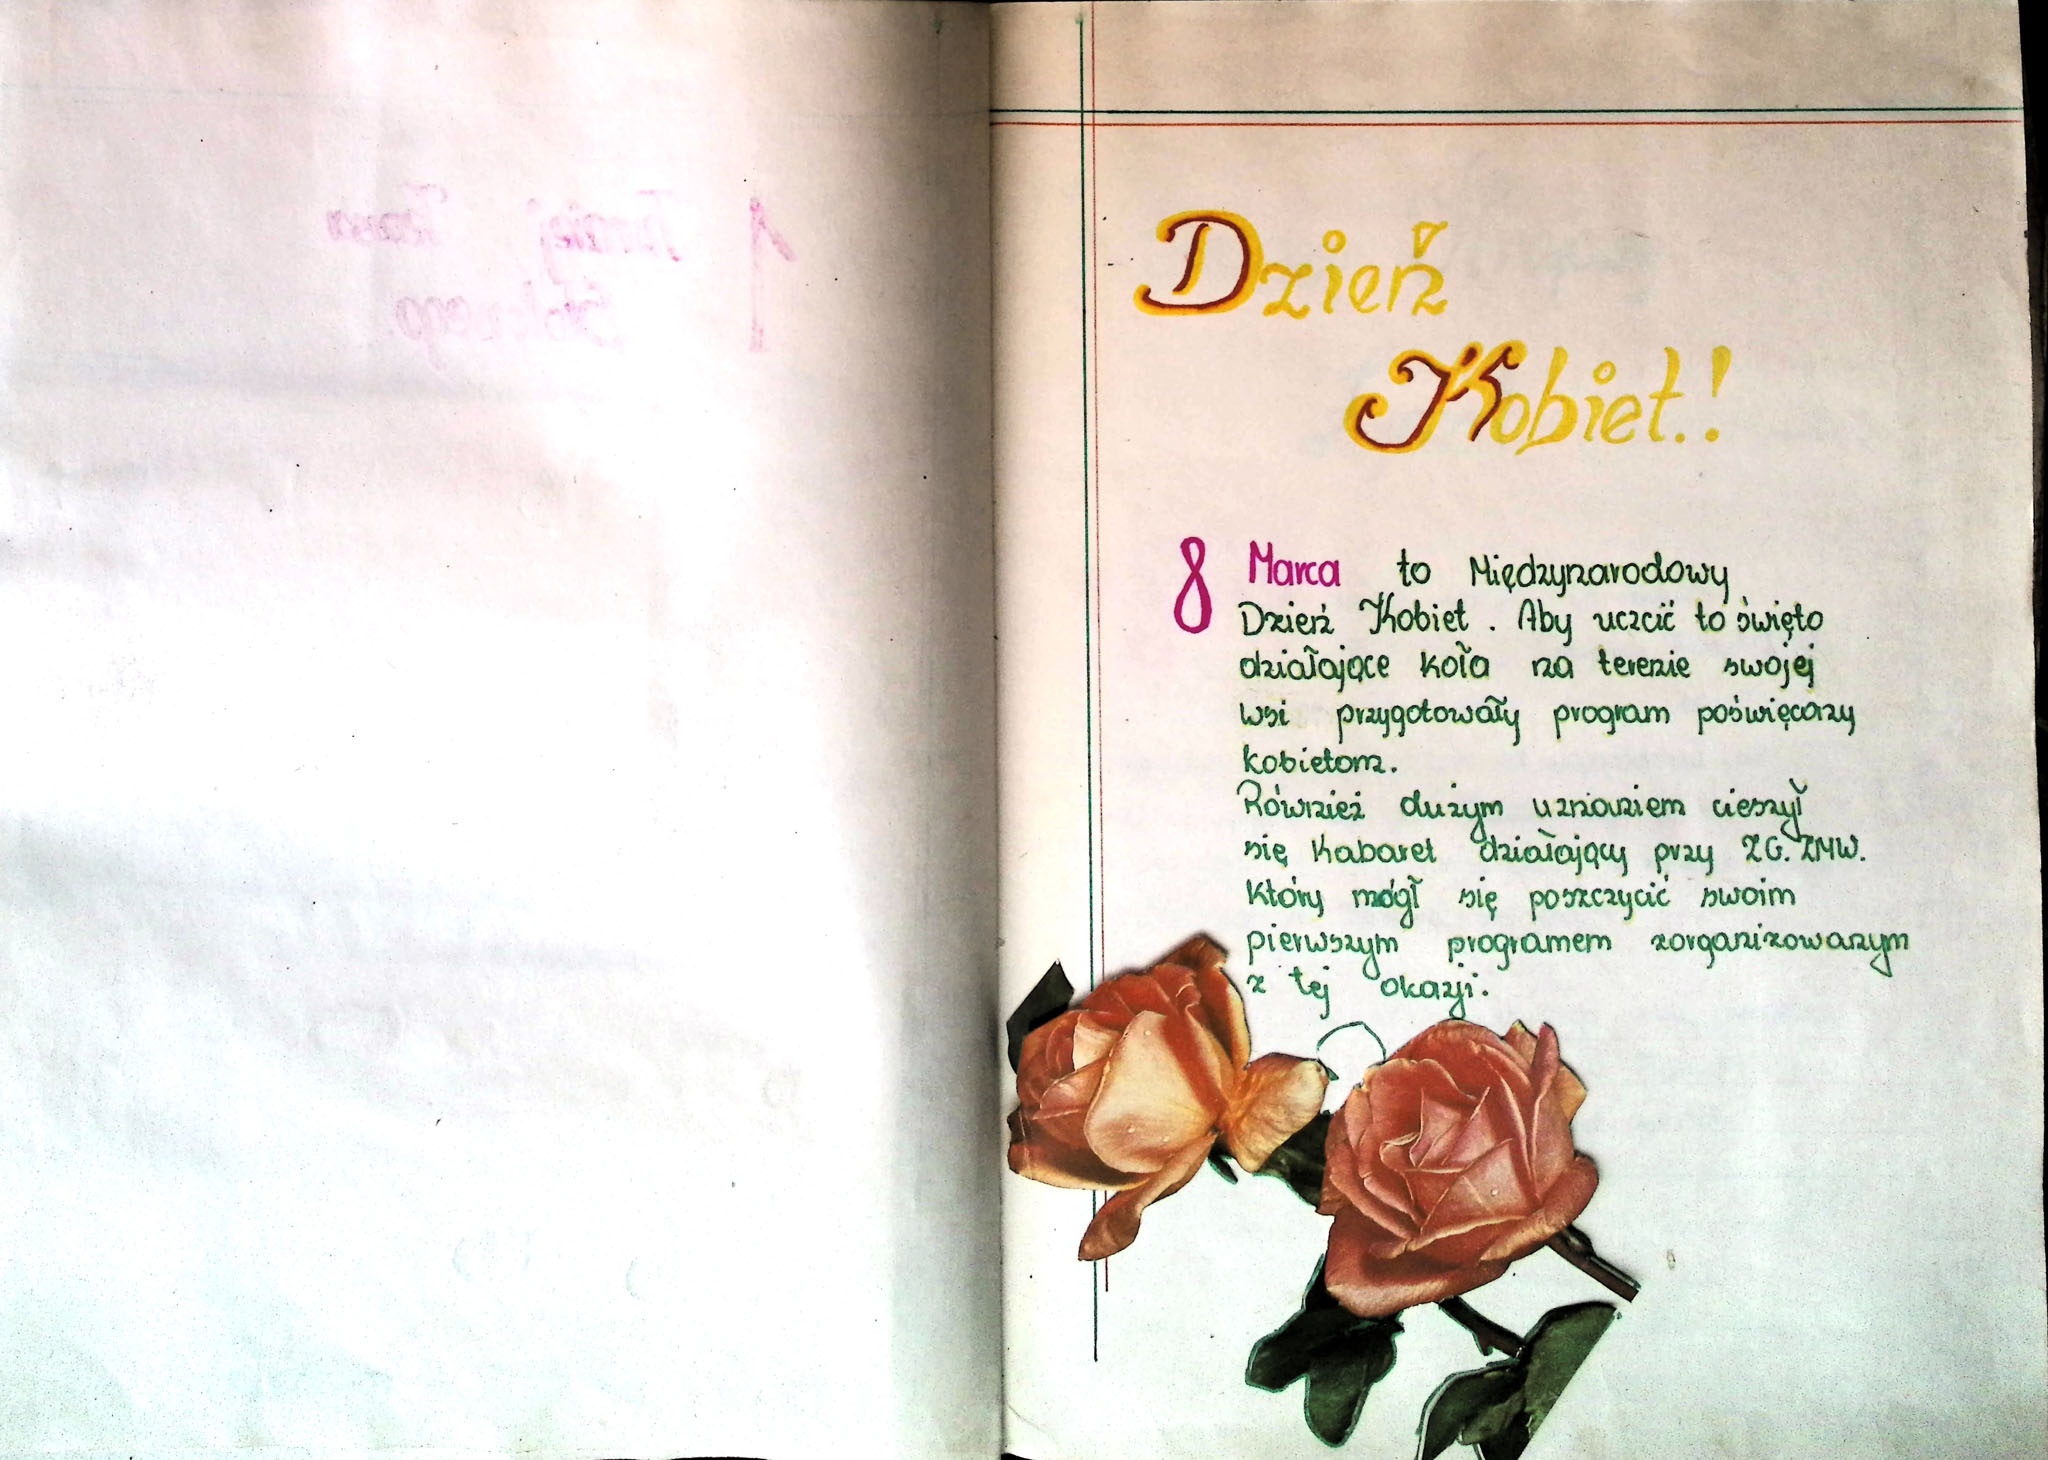 Dzień
Kobiet.!
8 Marca to Międzynarodowy
Dzień Kobiet. Aby uczcić to święto
działające koła na terenie swojej
wsi przygotowały program poświęcany
kobietom.
Również dużym uznaniem cieszył
się Kabaret działający przy ZG. ZMW.
Który mógł się poszczycić swoim
pierwszym programem zorganizowanym
z tej okazji.